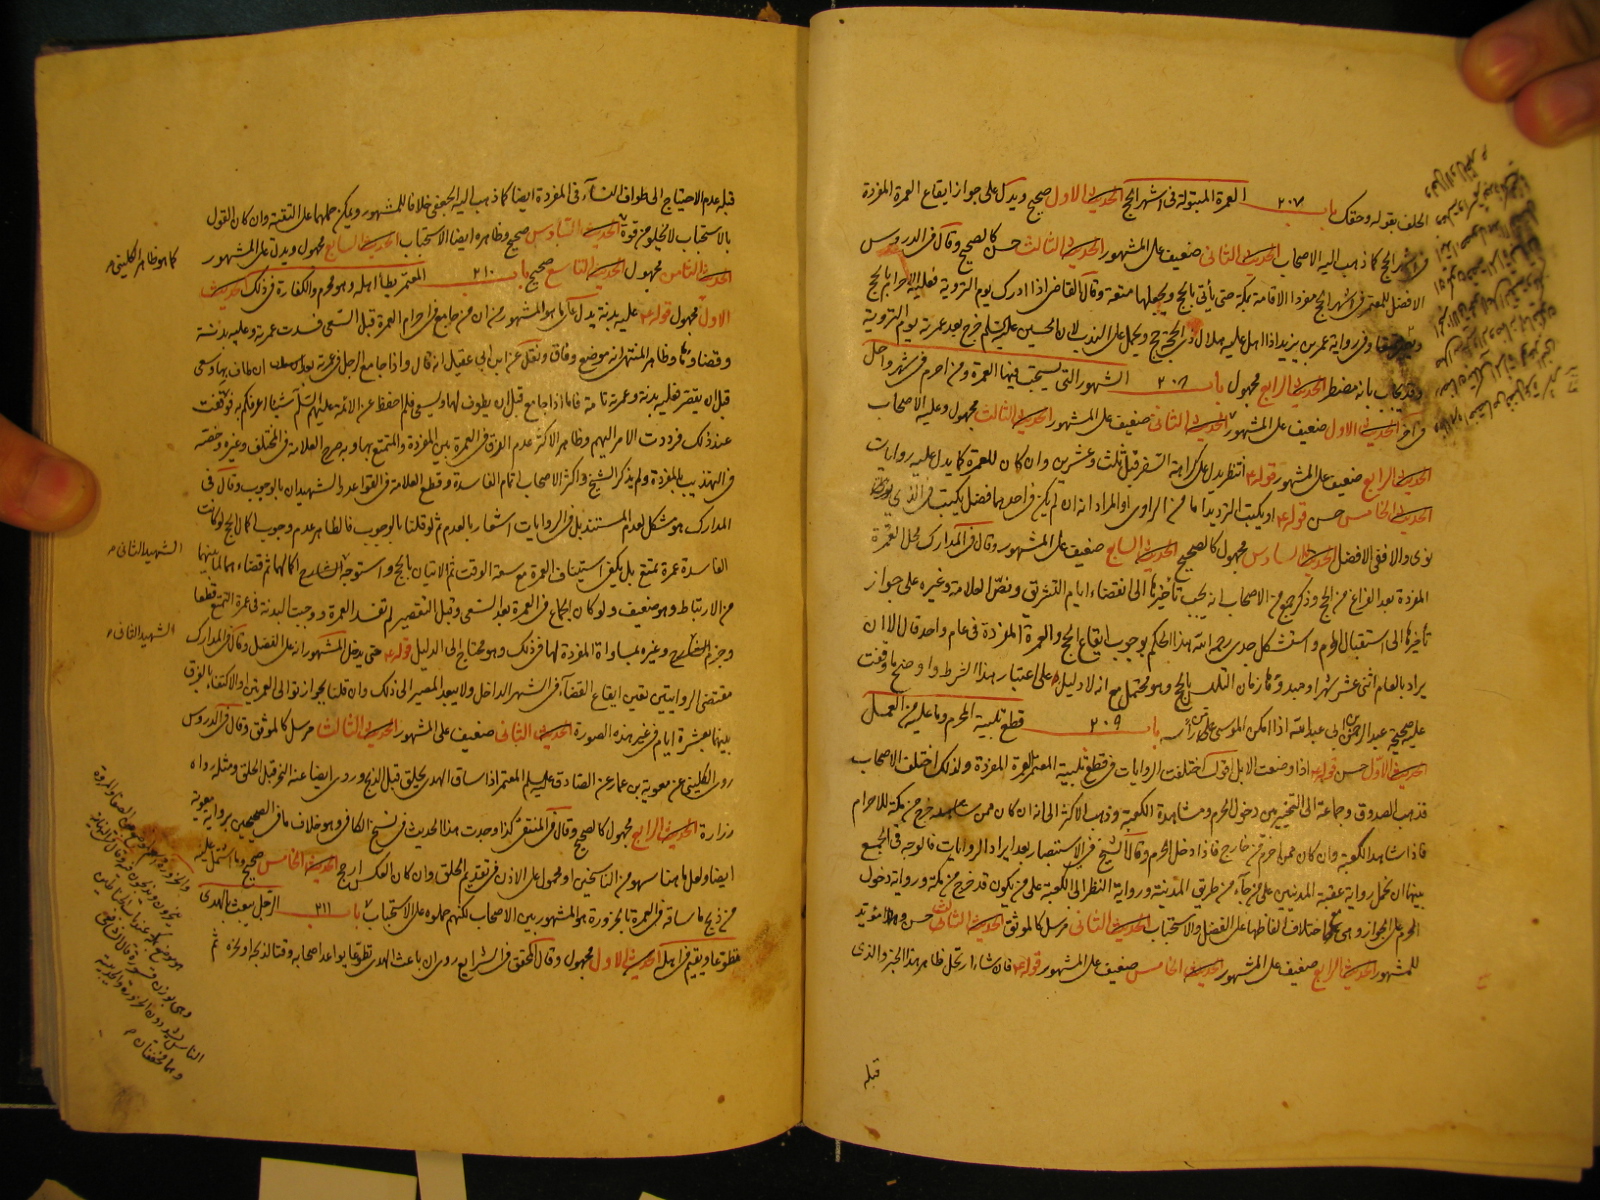 الحلف بقوله وحقك باب ٢٠٧ العمرة المبتولة في اشهر الحج الحديث الاول صحيح ويدل على جواز ايقاع العمرة المفردة
في اشهر الحج كما ذهب اليه الاصحاب الحديث الثاني ضعيف على المشهور الحديث الثالث حسن كالصحيح وقال في الدروس
الافضل للمعتمر في اشهر الحج مفردا الاقامة بمكة حتى يأتي بالحج ويجعلها متعة وقال القاضي اذا ادرك يوم التروية فعليه الاحرام بالحج
وفي رواية عمر بن يزيد اذا اهل عليه هلال ذي الحجة حج ويحمل على الندب لان الحسين عليه السلم خرج بعد عمرته يوم التروية
وقد يجاب بانه مضطر الحديث الرابع مجهول باب ٢٠٨ الشهور التي يستحب فيها العمرة ومن احرم في شهر واحل
في اخر الحديث الاول ضعيف على المشهور الحديث الثاني ضعيف على المشهور الحديث الثالث مجهول وعليه الاصحاب
الحديث الرابع ضعيف على المشهور قوله ع انتظر يدل على كراهة السفر قبل ثلث وعشرين وان كان للعمرة كما يدل عليه روايات
الحديث الخامس حسن قوله ع او يكتب الترديد اما من الراوي او المراد انه ان لم يكن في احدهما فضل يكتب في الذي
نوى والا ففي الافضل الحديث السادس مجهول كالصحيح الحديث السابع ضعيف على المشهور وقال في المدارك محل العمرة
المفردة بعد الفراغ من الحج وذكر جمع من الاصحاب انه يجب تأخيرها الى انقضاء ايام التشريق ونص العلامة وغيره على جواز
تأخيرها الى استقبال المحرم واستشكل جدي رحمه الله هذا الحكم بوجوب ايقاع الحج والعمرة المفردة في عام واحد قال الا ان
يراد بالعام اثنى عشر شهرا ومبدؤها زمان التلبس بالحج وهو محتمل مع انه لا دليل على اعتبار هذا الشرط واوضح ما وقفت
عليه صحيحة عبد الرحمن بن ابي عبد الله اذا امكن الموسى على رأسه باب ٢٠٩ قطع تلبية المحرم وما عليه من العمل
الحديث الاول حسن قوله ع اذا وضعت الابل اقول اختلفت الروايات في قطع تلبية المعتمر بالعمرة المفردة ولذلك اختلف الاصحاب
فذهب الصدوق وجماعة الى التخيير بين دخول الحرم ومشاهدة الكعبة وذهب الاكثر الى انه ان كان ممن خرج من مكة للاحرام
فاذا شاهد الكعبة وان كان ممن احرم من خارج فاذا دخل الحرم وقال الشيخ في الاستبصار بعد ايراد الروايات فالوجه في الجمع
بينها ان نحمل رواية عقبة المدنيين على من جاء من طريق المدينة ورواية النظر الى الكعبة على من يكون قد خرج من مكة ورواية دخول
الحرم على الجواز وهي مع اختلاف الفاظها على الفضل والاستحباب الحديث الثاني مرسل كالموثق الحديث الثالث حسن مؤيد
للمشهور الحديث الرابع ضعيف على المشهور الحديث الخامس ضعيف على المشهور قوله ع فان شاء ارتحل ظاهر هذا الخبر والذي
قبله
قبله عدم الاحتياج الى طواف النساء في المفردة ايضا كما ذهب اليه الجعفي خلافا للمشهور ويمكن حملهما على التقية وان كان القول
بالاستحباب لا يخلو من قوة الحديث السادس صحيح وظاهره ايضا الاستحباب الحديث السابع مجهول ويدل على المشهور
كما هو ظاهر الكليني
الحديث الثامن مجهول الحديث التاسع صحيح باب ٢١٠ المعتمر يطأ اهله وهو محرم والكفارة في ذلك الحديث
الاول مجهول قوله ع عليه بدنة يدل على ما هو المشهور من ان من جامع في احرام العمرة قبل السعي فسدت عمرته وعليه بدنة
وقضاؤها وظاهر المنتهى انه موضع وفاق ونقل عن ابن ابي عقيل انه قال واذا جامع الرجل في عمرته بعد ان طاف بها وسعى
قبل ان يقصر فعليه بدنة وعمرته تامة فاما اذا جامع قبل ان يطوف لها ويسعى فلم احفظ عن الائمة عليهم السلم شيئا اعرفكم به فوقفت
عند ذلك فرددت الامر اليهم وظاهر الاكثر عدم الفرق في العمرة بين المفردة والمتمتع بها وبه صرح العلامة في المختلف وغيره وخصه
في التهذيب بالمفردة ولم يذكر الشيخ واكثر الاصحاب اتمام الفاسدة وقطع العلامة في القواعد والشهيدان بالوجوب وقال في
المدارك هو مشكل لعدم المستند بل في الروايات اشعار بالعدم ثم لو قلنا بالوجوب فالظاهر عدم وجوب اكمال الحج لو كانت
الفاسدة عمرة تمتع بل يكفي استيناف العمرة مع سعة الوقت ثم الاتيان بالحج واستوجه الشارح اكمالهما ثم قضاءهما لما بينهما
الشهيد الثاني
من الارتباط وهو ضعيف ولو كان الجماع في العمرة بعد السعي وقبل التقصير لم تفسد العمرة ووجبت البدنة في عمرة التمتع قطعا
وجزم الشارح وغيره بمساواة المفردة لها في ذلك وهو محتاج الى الدليل قوله ع حتى يدخل المشهور انه على الفضل وقال في المدارك
الشهيد الثاني
مقتضى الروايتين تعين ايقاع القضاء في الشهر الداخل ولا يبعد المصير الى ذلك وان قلنا بجواز توالي العمرتين او الاكتفاء بالفرق
بينهما بعشرة ايام في غير هذه الصورة الحديث الثاني ضعيف على المشهور الحديث الثالث مرسل كالموثق وقال في الدروس
روى الكليني عن معوية بن عمار عن الصادق عليه السلم المعتمر اذا ساق الهدي يحلق قبل الذبح وروى ايضا عنه النحر قبل الحلق ومثله رواه
زرارة الحديث الرابع مجهول كالصحيح وقال في المنتقى كذا وجدت هذا الحديث في نسخ الكافي وهو خلاف ما في الصحيحين برواية معوية
ايضا ولعل ما هنا سهو من الناسخين او محمول على الاذن في تقديم الحلق وان كان العكس ارجح الحديث الخامس صحيح وما اشتمل عليه
من ذبح ما ساقه في العمرة بالحزورة هو المشهور بين الاصحاب لكنهم حملوه على الاستحباب باب ٢١١ الرجل يبعث بالهدي
تطوعا ويقيم في اهله الحديث الاول مجهول وقال المحقق في الشرايع روى ان باعث الهدي تطوعا يواعد اصحابه وقتا لذبحه او نحره ثم